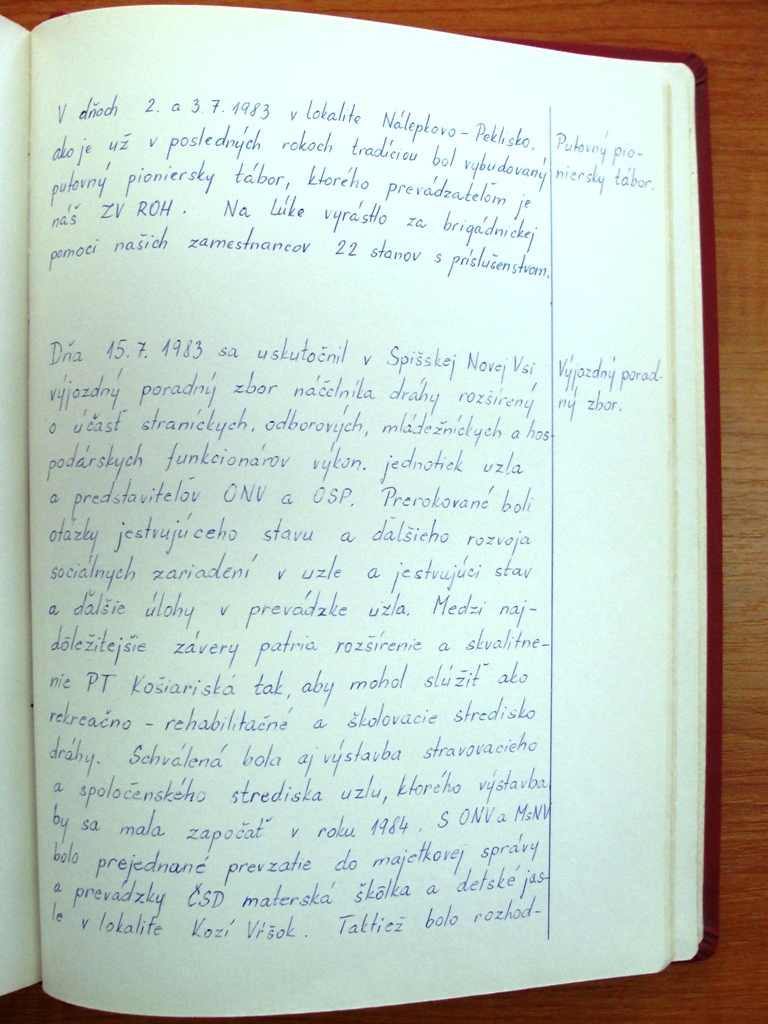 V dňoch 2. a 3. 7. 1983 v lokalite Nálepkovo - Peklisko,
ako je už v posledných rokoch tradíciou bol vybudovaný
putovný pioniersky tábor, ktorého prevádzateľom je
náš ZV ROH. Na lúke vyrástlo za brigádnickej
pomoci našich zamestnancov 22 stanov s príslušenstvom.
Putovný pio-
niersky tábor.
Dňa 15. 7. 1983 sa uskutočnil v Spišskej Novej Vsi
výjazdný poradný zbor náčelníka dráhy rozšírený
o účasť straníckych, odborových, mládežníckych a hos-
podárskych funkcionárov výkon. jednotiek uzla
a predstaviteľov ONV a OSP. Prerokované boli
otázky jestvujúceho stavu a ďalšieho rozvoja
sociálnych zariadení v uzle a jestvujúci stav
a ďalšie úlohy v prevádzke uzla. Medzi naj-
dôležitejšie závery patria rozšírenie a skvalitne-
nie PT Košiariská tak, aby mohol slúžiť ako
rekreačno - rehabilitačné a školovacie stredisko
dráhy. Schválená bola aj výstavba stravovacieho
a spoločenského strediska uzlu, ktorého výstavba
by sa mala započať v roku 1984. S ONV a MsNV
bolo prejednané prevzatie do majetkovej správy
a prevádzky ČSD materská škôlka a detské jas-
le v lokalite Kozí Vŕšok. Taktiež bolo rozhod-
Výjazdný porad-
ný zbor.